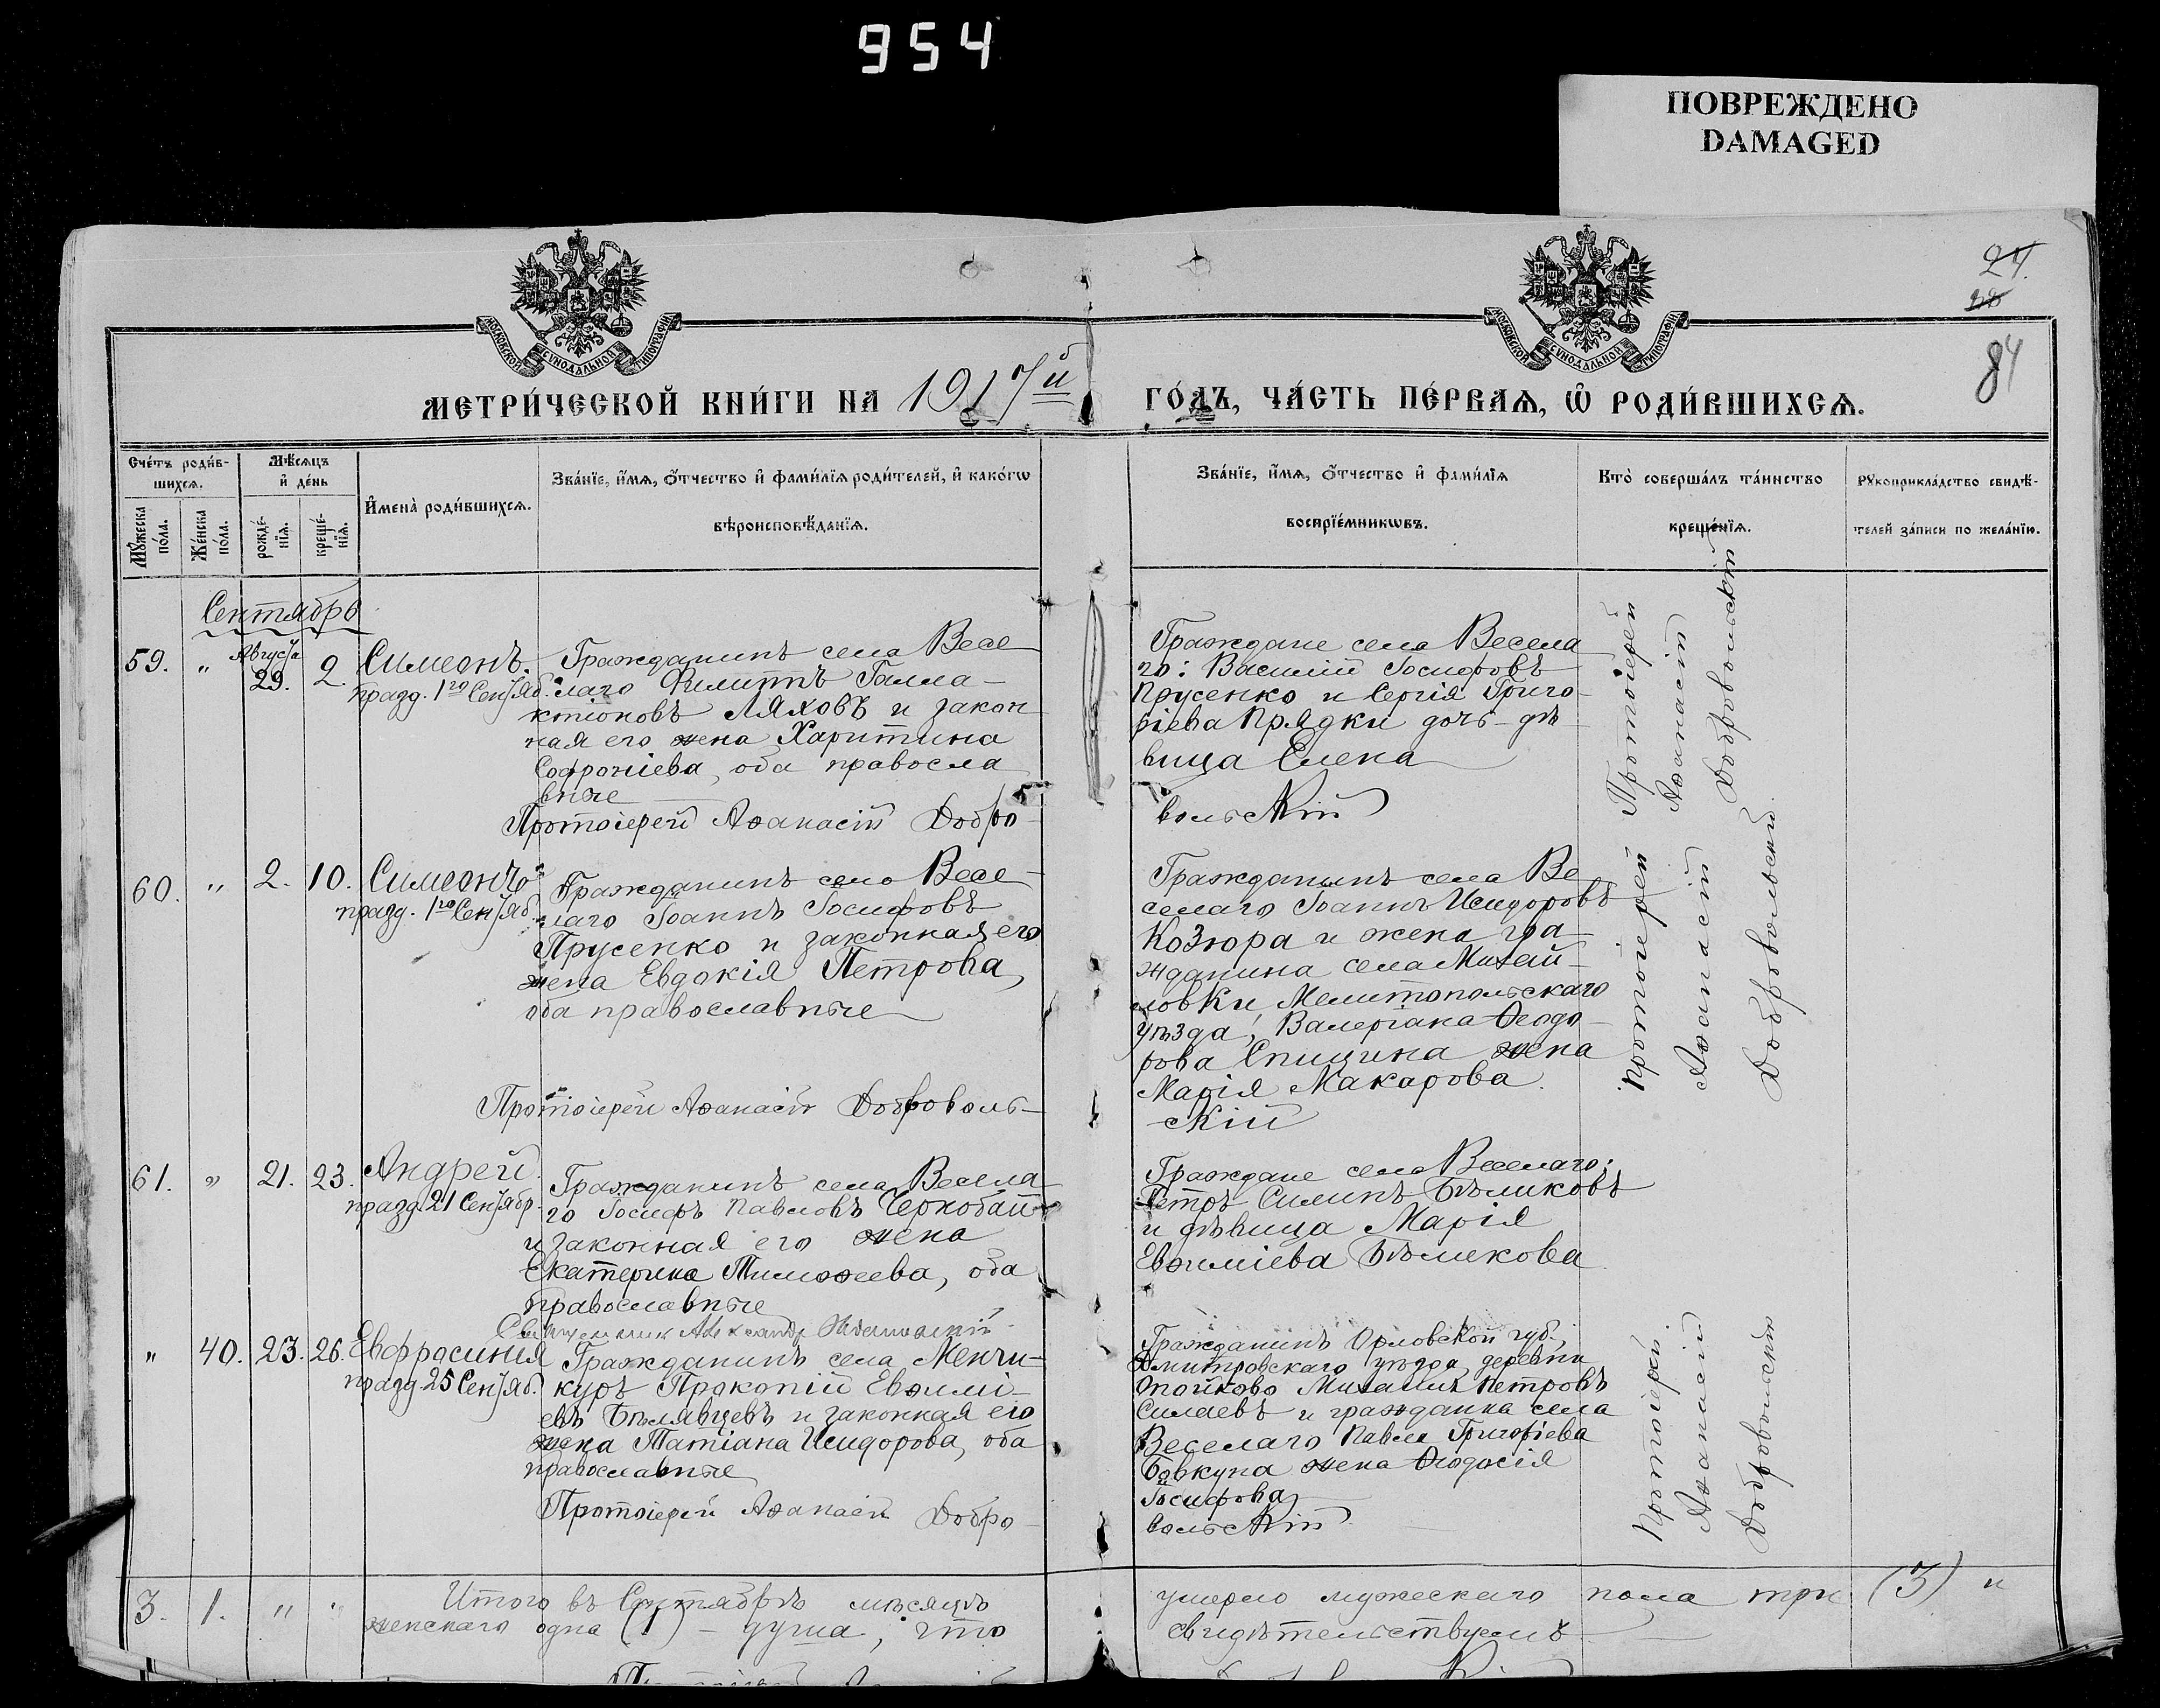 954
ПОВРЕЖДЕНО
DAMAGED
МОСКОВСКОЙ СѴНОДАЛЬНОЙ ТИПОГРАФІИ
МОСКОВСКОЙ СѴНОДАЛЬНОЙ ТИПОГРАФІИ
24.
84
МЕТРИ́ЧЕСКОЙ КНИ́ГИ НА 1917й ГО́ДЪ, ЧА́СТЬ ПЕ́РВАѦ, Ѡ҆ РОДИ́ВШИХСѦ.
Сче́тъ роди́в-
шихсѧ.
Мꙋ́жеска по́ла.
Же́нска по́ла.
Мѣ́сѧцъ
и҆ де́нь
рожде́-нїѧ.
креще́-нїѧ.
И҆мена̀ роди́вшихсѧ.
Зва́нїе, и҆́мѧ, ѻ҆́тчество и҆ фами́лїѧ роди́телей, и҆ како́гѡ
вѣроисповѣ́данїѧ.
Зва́нїе, и҆́мѧ, ѻ҆́тчество и҆ фами́лїѧ
воспрїе́мникѡвъ.
Кто̀ соверша́лъ та́инство
креще́нїѧ.
Рꙋкоприкла́дство свидѣ́-
телей за́писи по жела́нїю.
Сентябрь
59. " Августа 29. 2. Симеонъ.
празд. 1го Сентяб.
Гражданинъ села Весе
лаго Филиппъ Галла-
ктіоновъ Ляховъ и закон
ная его жена Харитина
Софроніева, оба правосла
вные
Протоіерей Аѳанасій Добро-
вольскій
Граждане села Весела
го: Василій Іосифовъ
Прусенко и Сергія Григо-
ріева Прядки дочь-дѣ
вица Елена
Протоіерей
Аѳанасій
Добровольскій
60. " 2. 10. Симеонъ
празд. 1го Сентяб.
Гражданинъ села Весе-
лаго Іоаннъ Іосифовъ
Прусенко и законная его
жена Евдокія Петрова,
оба православные
Протоіерей Аѳанасій Доброволь-
скій
Гражданинъ села Ве
селаго Іоаннъ Исидоровъ
Козюра и жена гра-
жданина села Михай-
ловки, Мелитопольскаго
уѣзда, Валеріана Ѳеодо-
рова Спицина жена
Марія Макарова.
Протоіерей
Аѳанасій
Добровольскій.
61. " 21. 23. Андрей
празд. 21 Сентябр.
Гражданинъ села Весела
го Іосифъ Павловъ Чернобай
и законная его жена
Екатерина Тимоѳеева, оба
православные
Священникъ Александръ
Граждане села Веселаго:
Петръ Силинъ Бѣликовъ
и дѣвица Марія
Евѳиміева Бѣликова
" 40. 23. 26. Евфросинія
празд. 25 Сентяб.
Гражданинъ села Менчи-
куръ Прокопій Евѳимі-
евъ Бѣлявцевъ и законная его
жена Татіана Исидорова, оба
православные
Протоіерей Аѳанасій Добро-
вольскій
Гражданинъ Орловской губ.
Дмитровскаго уѣзда деревни
Михаилъ Петровъ
Силаевъ и гражданка села
Веселаго Павла Григоріева
Бовкуна жена Ѳеодосія
Іосифова
Протоіерей
Аѳанасій
Добровольскій
3. 1. " " Итого въ Сентябрѣ мѣсяцѣ умерло мужескаго пола три (3) и
женскаго одна (1) - душа, что свидѣтельствуемъ